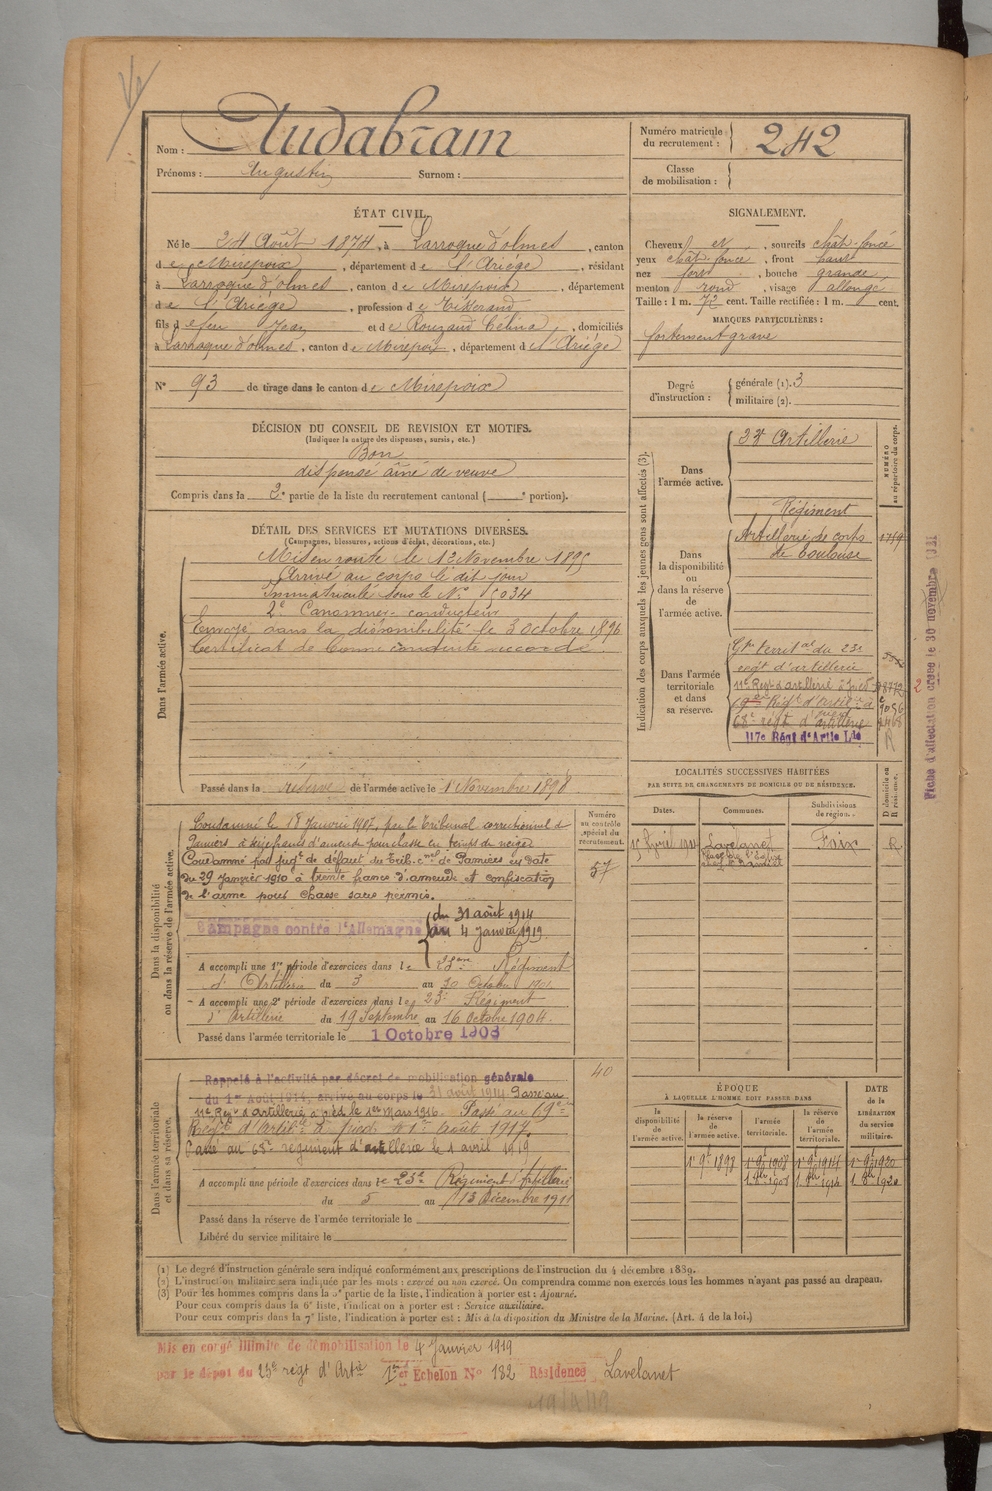 Nom : Audabram
Prénoms : Augustin Surnom :
Numéro matricule du recrutement : 242
Classe de mobilisation :
ÉTAT CIVIL.
Né le 24 Août 1874, à Larroque d'olmes, canton
de Mirepoix, département de l'Ariège, résidant
à Larroque d'olmes, canton de Mirepoix, département
de l'Ariège, profession de Tisserand
fils de feu Jean et de Rouzaud Célina, domiciliés
à Larroque d'olmes, canton de Mirepoix, département de l'Ariège
N° 93 de tirage dans le canton de Mirepoix
SIGNALEMENT.
Cheveux et, sourcils chât-foncé
yeux chât-foncé, front haut
nez fort, bouche grande
menton rond, visage allongé
Taille : 1 m. 72 cent. Taille rectifiée : 1 m. cent.
MARQUES PARTICULIÈRES :
fortement gravé
Degré d'instruction : générale (1). 3
militaire (2).
DÉCISION DU CONSEIL DE REVISION ET MOTIFS.
(Indiquer la nature des dispenses, sursis, etc.)
Bon
dispensé aîné de veuve
Compris dans la 2e partie de la liste du recrutement cantonal ( e portion).
DÉTAIL DES SERVICES ET MUTATIONS DIVERSES.
(Campagnes, blessures, actions d'éclat, décorations, etc.)
Dans l'armée active.
Mis en route le 12 Novembre 1895
Arrivé au corps le dit jour
Immatriculé sous le N° 6034
2e Canonnier conducteur
Envoyé dans la disponibilité le 3 octobre 1896
Certificat de bonne conduite accordé
Passé dans la réserve de l'armée active le 1 Novembre 1898
Indication des corps auxquels les jeunes gens sont affectés (3).
NUMÉRO au répertoire du corps.
Dans l'armée active.
23e Artillerie
Dans la disponibilité ou dans la réserve de l'armée active.
Régiment
Artillerie de corps
de Toulouse
1719
Dans l'armée territoriale et dans sa réserve.
Gpe territal du 23e
régt d'artillerie
11e Régt d'artillerie à pied
19e Régt d'artie à
68e régt d'artillerie
117e Régt d'Artie Lde
Fiche d'affectation créée le 30 novembre
LOCALITÉS SUCCESSIVES HABITÉES
PAR SUITE DE CHANGEMENTS DE DOMICILE OU DE RÉSIDENCE.
Dates. Communes. Subdivisions de région. Domicile ou Résidence.
Avril Lavelanet Foix R
Numéro au contrôle spécial du recrutement.
57
Dans la disponibilité ou dans la réserve de l'armée active.
Condamné le 18 Janvier 1907, par le Tribunal correctionnel de
Pamiers, à d'amende pour chasse en temps de neige
Condamné par jugt de défaut du Trib. cnel de Pamiers en date
du 29 Janvier 1910 à trente francs d'amende et confiscation
de l'arme pour chasse sans permis.
Campagne contre l'Allemagne du 31 août 1914
au 4 janvier 1919
A accompli une 1re période d'exercices dans le Régiment
d'Artillerie du 3 au 30 Octobre 1901
A accompli une 2e période d'exercices dans le 23e Régiment
d'Artillerie du 19 Septembre au 16 octobre 1904
Passé dans l'armée territoriale le 1 Octobre 1908
40
Dans l'armée territoriale et dans sa réserve.
Rappelé à l'activité par décret de mobilisation générale
du 1er Août 1914, arrivé au corps le 31 août 1914. Passé au
11e Régt d'artillerie à pied le 1er Mars 1916. Passé au 19e
Régt d'Artie à pied le 1er août 1917
Passé au 68e régiment d'artillerie le 1 avril 1919
A accompli une période d'exercices dans le 23e Régiment d'artillerie
du 5 au 13 Décembre 1911
Passé dans la réserve de l'armée territoriale le
Libéré du service militaire le
ÉPOQUE
À LAQUELLE L'HOMME DOIT PASSER DANS
DATE de la LIBÉRATION du service militaire.
la disponibilité de l'armée active. la réserve de l'armée active. l'armée territoriale. la réserve de l'armée territoriale.
(1) Le degré d'instruction générale sera indiqué conformément aux prescriptions de l'instruction du 4 décembre 1889.
(2) L'instruction militaire sera indiquée par les mots : exercé ou non exercé. On comprendra comme non exercés tous les hommes n'ayant pas passé au drapeau.
(3) Pour les hommes compris dans la 5e partie de la liste, l'indication à porter est : Ajourné.
Pour ceux compris dans la 6e liste, l'indication à porter est : Service auxiliaire.
Pour ceux compris dans la 7e liste, l'indication à porter est : Mis à la disposition du Ministre de la Marine. (Art. 4 de la loi.)
Mis en congé illimité de démobilisation le 4 Janvier 1919
par le dépôt du 23e régt d'Artie 1er Echelon N° 182 Résidence Lavelanet